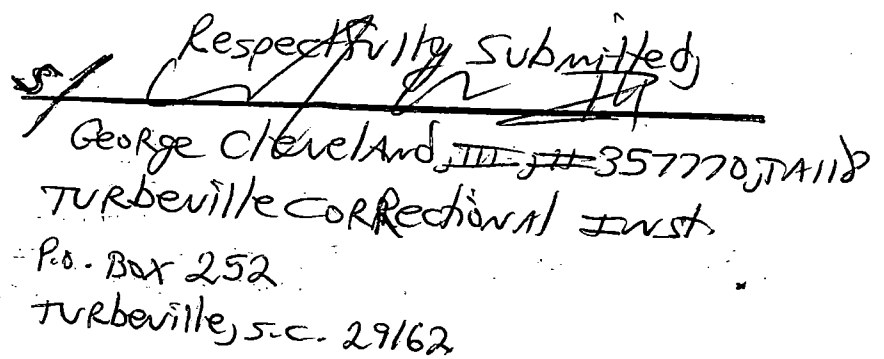 Respectfully Submitted,
S/
George Cleveland, III, #357770, TA118
Turbeville Correctional Inst.
P.O. Box 252
Turbeville, S.C. 29162